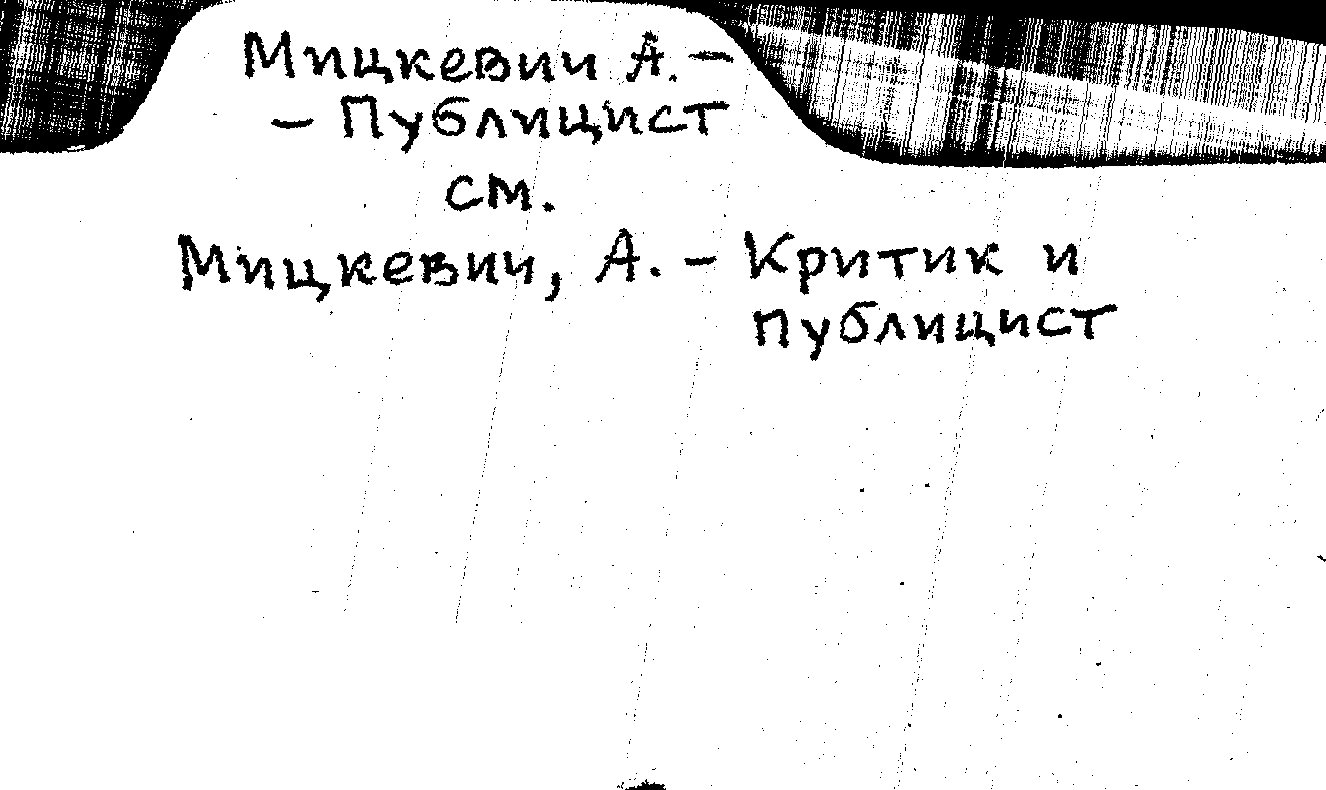 Мицкевич А. –
– Публицист
см.
Мицкевич, А. – Критик и
публицист